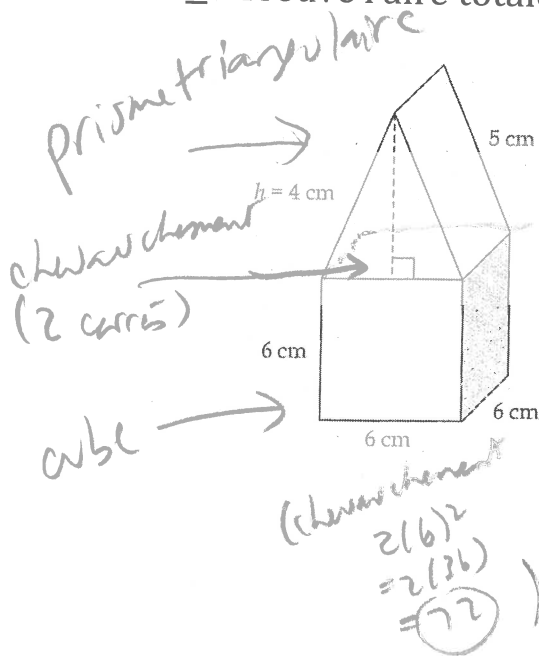 prisme triangulaire
5 cm
h = 4 cm
chevauchement
(2 carrés)
6 cm
6 cm
6 cm
cube
(chevauchement
2(6)²
= 2(36)
= 72 )